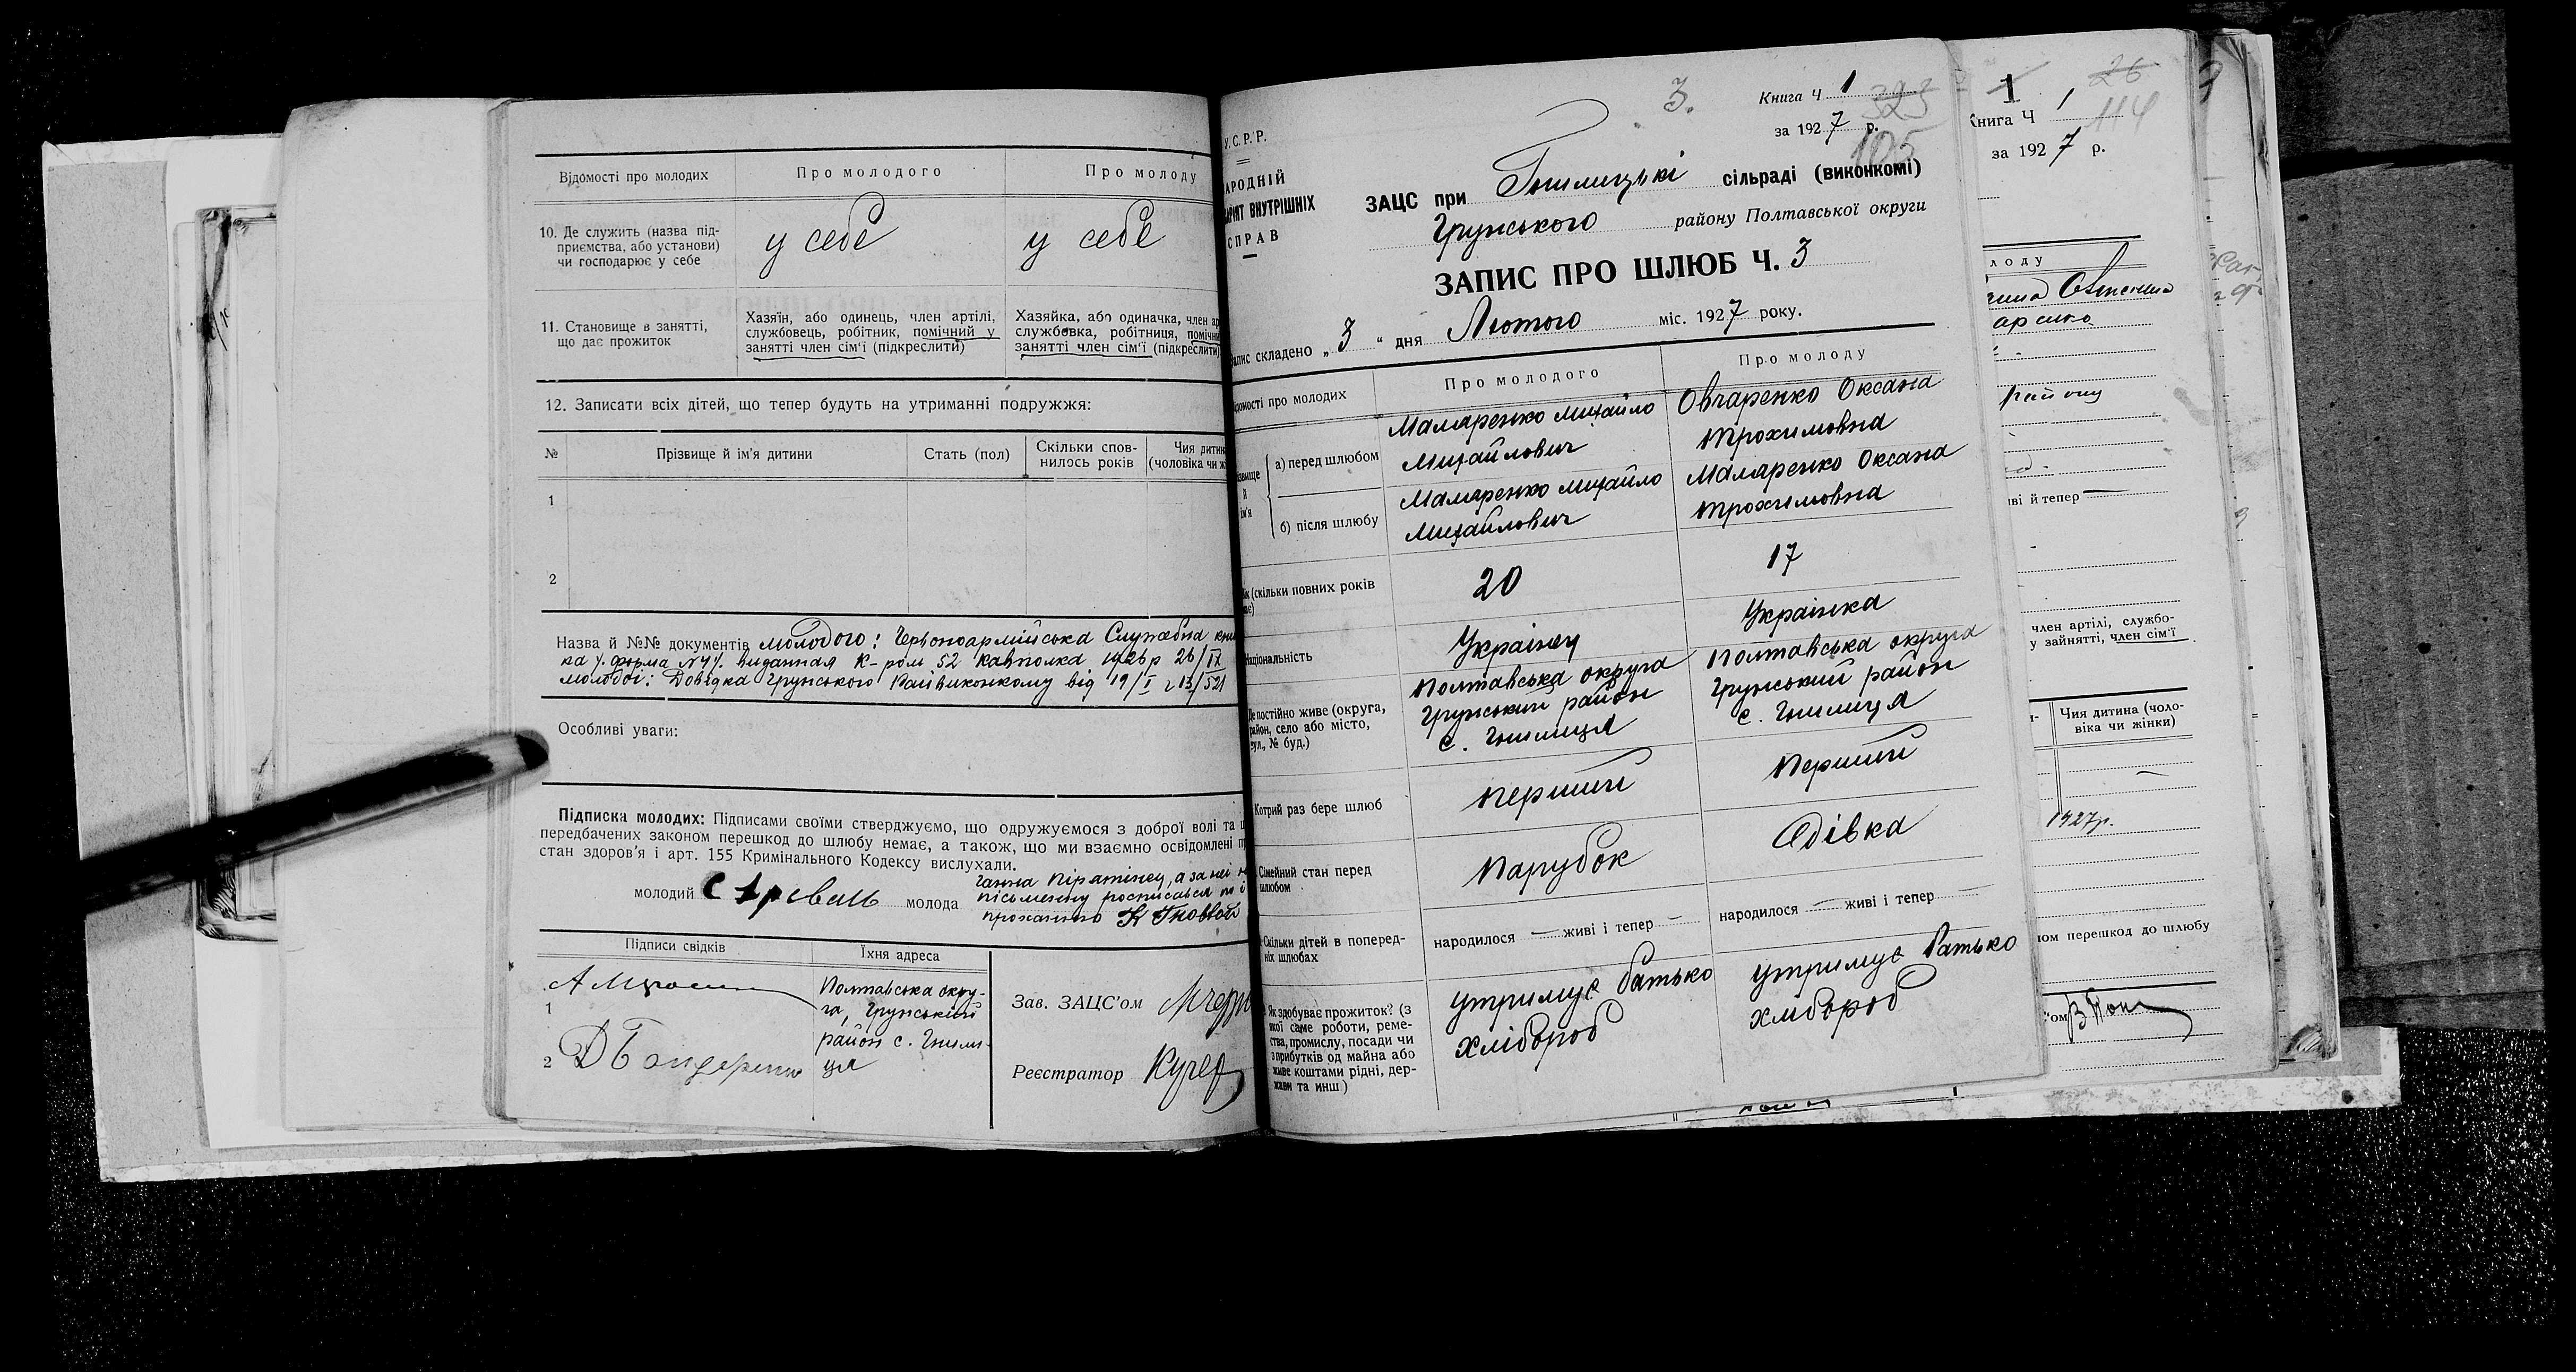 Відомості про молодих
Про молодого
Про молоду
10. Де служить (назва під-
приємства, або установи)
чи господарює у себе
у себе
у себе
11. Становище в занятті,
що дає прожиток
Хазяїн, або одинець, член артілі,
службовець, робітник, помічний у
занятті член сім'ї (підкреслити)
Хазяйка, або одиначка, член
службовка, робітниця,
занятті член сім'ї (підкреслити)
12. Записати всіх дітей, що тепер будуть на утриманні подружжя:
№
Прізвище й ім'я дитини
Стать (пол)
Скільки спов-
нилось років
Чия
(чоловіка чи
1
2
Назва й №№ документів молодого: Червоноармійська Службова
ка у. форма №4 у. виданная К-ром 52 кавполка 1926 р 26/IX
молодої: Довідка Грунського Райвиконкому від 19/I 13/521
Особливі уваги:
Підписка молодих: Підписами своїми стверджуємо, що одружуємося з доброї волі та
передбачених законом перешкод до шлюбу немає, а також, що ми взаємно освідомлені
стан здоров'я і арт. 155 Кримінального Кодексу вислухали.
молодий
молода
Ганна Пірятінец, а за неї
пісьменну росписався по
проханню
Підписи свідків
Їхня адреса
1
2
Полтавська окру-
га, Грунський
район с. Гнили-
ця
Зав. ЗАЦС'ом
Реєстратор
У.С.Р.Р.
ВНУТРІШНІХ
СПРАВ
3.
Книга Ч 1
323
за 1927 р.
105
ЗАЦС при Гнилицькі сільраді (виконкомі)
Грунського району Полтавської округи
ЗАПИС ПРО ШЛЮБ Ч. 3
складено „3“ дня Лютого міс. 1927 року.
про молодих
Про молодого
Про молоду
а) перед шлюбом
Маляренко Михайло
Михайлович
Овчаренко Оксана
Трохимовна
й
ім'я
б) після шлюбу
Маляренко Михайло
Михайлович
Маляренко Оксана
Трохимовна
(скільки повних років
20
17
Національність
Українец
Українка
Де постійно живе (округа,
район, село або місто,
вул., № буд.)
Полтавська округа
Грунський район
с. Гнилиця
Полтавська округа
Грунський район
с. Гнилиця
Котрий раз бере шлюб
Перший
Перший
Сімейний стан перед
шлюбом
Парубок
Дівка
Скільки дітей в поперед-
ніх шлюбах
народилося — живі і тепер —
народилося — живі і тепер —
Як здобуває прожиток? (з
якої саме роботи, реме-
ства, промислу, посади чи
з прибутків од майна або
живе коштами рідні, дер-
жави та инш)
утримує батько
хлібороб
утримує батько
хлібороб
1
26
Книга Ч 1
114
за 1927 р.
лоду
району
й тепер —
член артілі, службо-
у зайнятті, член сім'ї
Чия дитина (чоло-
віка чи жінки)
1927р.
перешкод до шлюбу